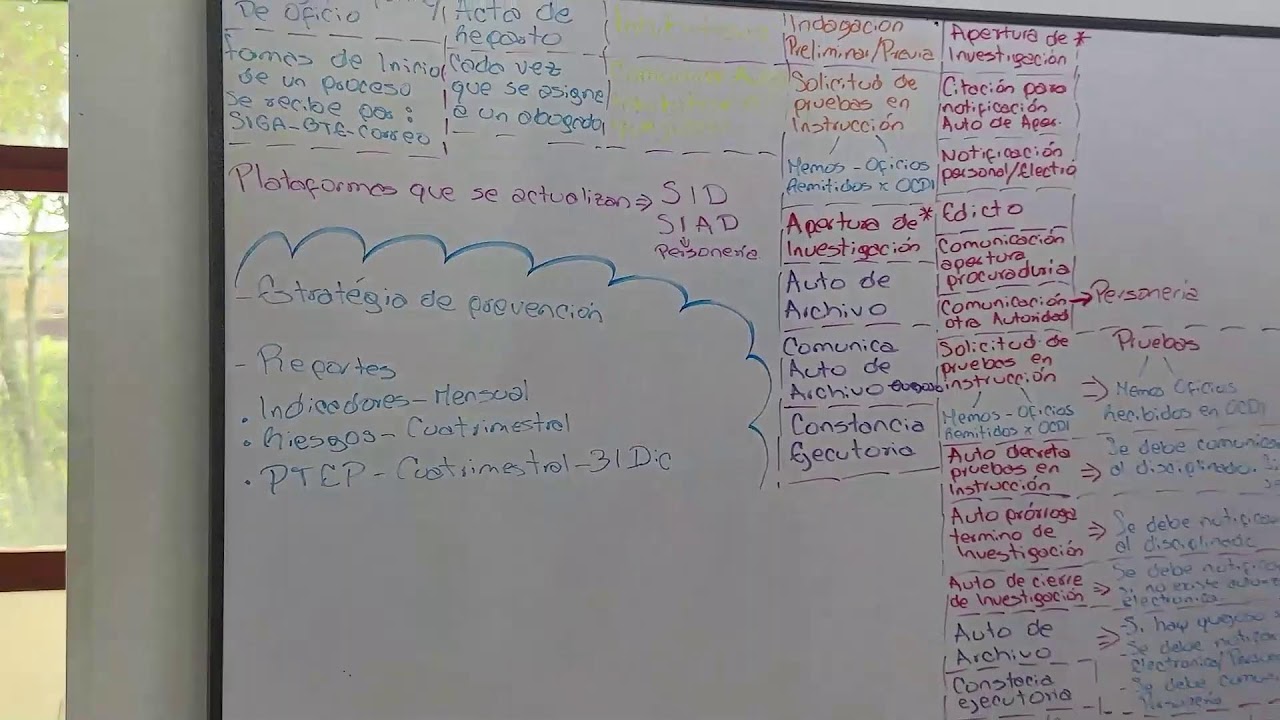 De Oficio
formas de Inicio
de un proceso
Se recibe por:
SIGA-BTE-Correo
Acta de
Reparto
Cada vez
que se asigne
a un abogado
Indagación
Preliminar/Previa
Solicitud de
pruebas en
Instrucción
Memos - Oficios
Remitidos x OCDI
Apertura de *
Investigación
Auto de
Archivo
Comunica
Auto de
Archivo
Constancia
Ejecutoria
Apertura de *
Investigación
Citación para
notificación
Auto de Aper.
Notificación
personal/Electro
Edicto
Comunicación
apertura
procuraduria
Comunicación → Personeria
otra Autoridad
Solicitud de
pruebas en
instrucción
Memos - Oficios
Remitidos x OCDI
⇒ Pruebas
Memos Oficios
Recibidos en OCDI
Auto decreta
pruebas en
Instrucción
⇒ Se debe comunica
al disciplinado.
Auto prórroga
termino de
Investigación
⇒ Se debe notifica
al disciplinado
Auto de cierre
de Investigación
⇒ Se debe notific
si no existe
electronica.
Auto de
Archivo
⇒ - Si hay quejoso
- Se debe notifica
Electronica/
- Se debe comun
Personeria
Constacia
ejecutoria
Plataformas que se actualizan ⇒ SID
SIAD
Personeria
- Estratégia de prevención
- Reportes
. Indicadores - Mensual
. Riesgos - Cuatrimestral
. PTEP - Cuatrimestral - 31 Dic